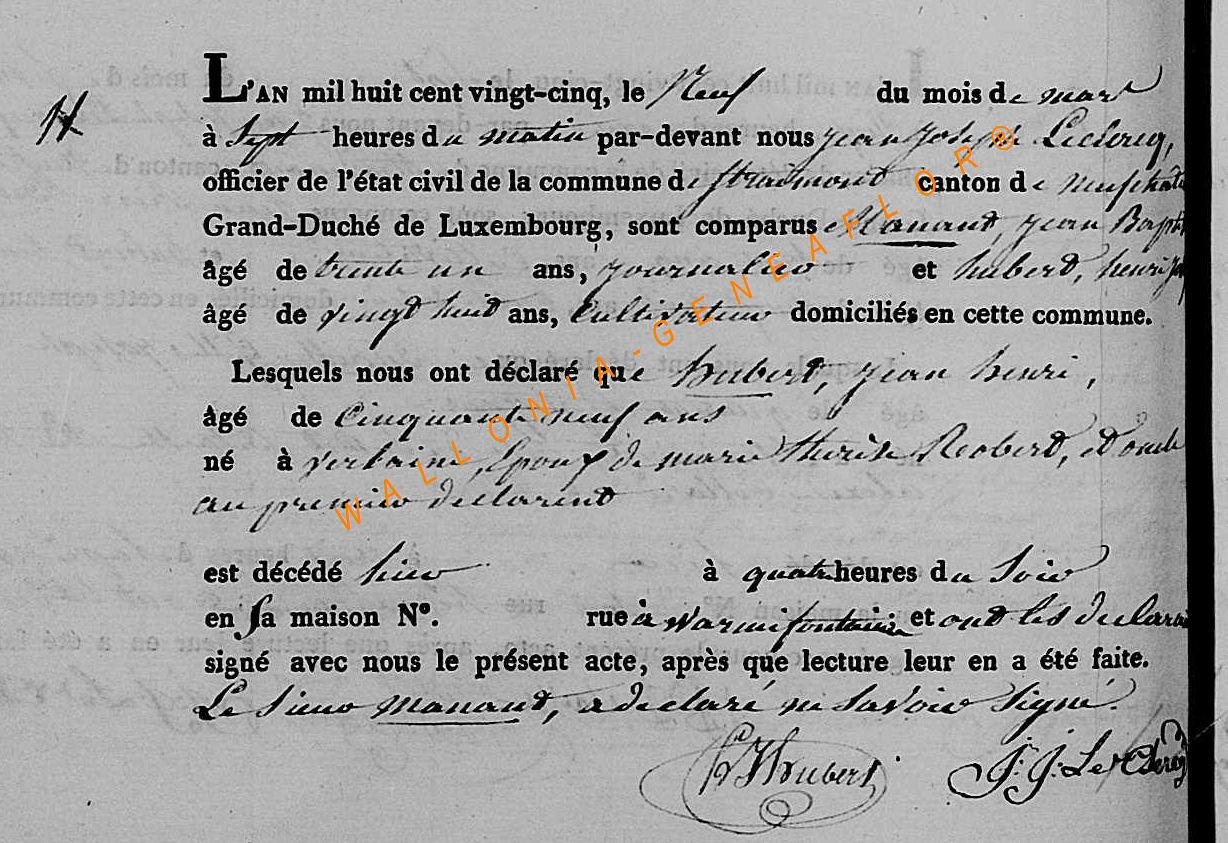 L'AN mil huit cent vingt-cinq, le Neuf du mois de mars
H
à Sept heures du matin par-devant nous jean joseph Leclercq,
officier de l'état civil de la commune de Straimont canton de neufchate
Grand-Duché de Luxembourg, sont comparus Manand, jean Bapti
âgé de trente un ans, journalier et hubert, henri jo
âgé de vingt huit ans, Cultivateur domiciliés en cette commune.
Lesquels nous ont déclaré que hubert, jean henri,
âgé de Cinquante neuf ans
né à verlaine, Epoux de marie therese Robert, et oncle
au premier declarent
est décédé hier à quatre heures du Soir
en Sa maison N°. rue à Warmifontaine et ont les declara
signé avec nous le présent acte, après que lecture leur en a été faite.
Le Sieur Manand, a declaré ne Savoir Signé.
hJHubert J: J: Le Clercq
WALLONIA-GENEAFLOR®